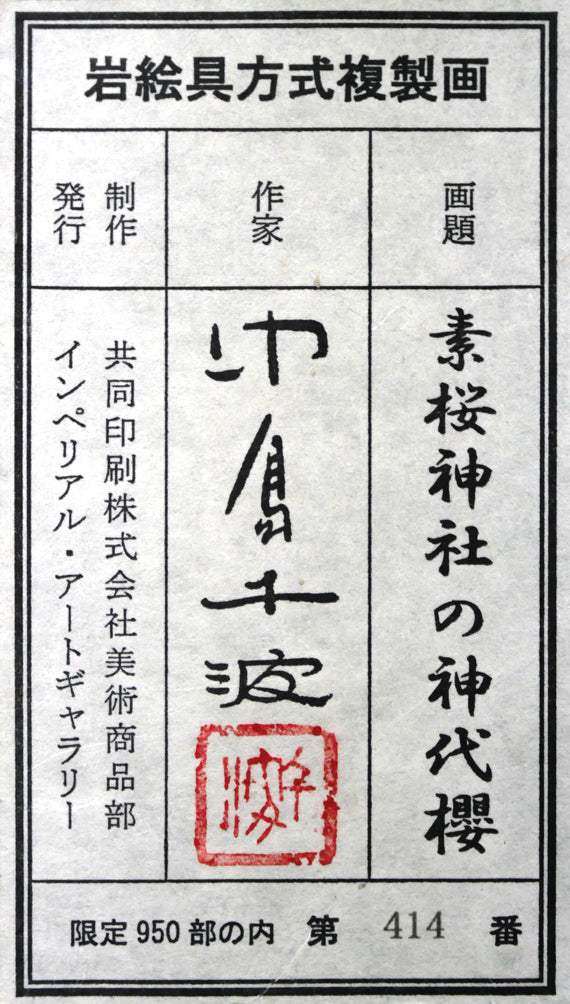 岩絵具方式複製画
画題
素桜神社の神代櫻
作家
中島千波
制作
発行
共同印刷株式会社美術商品部
インペリアル・アートギャラリー
限定950部の内 第 414 番